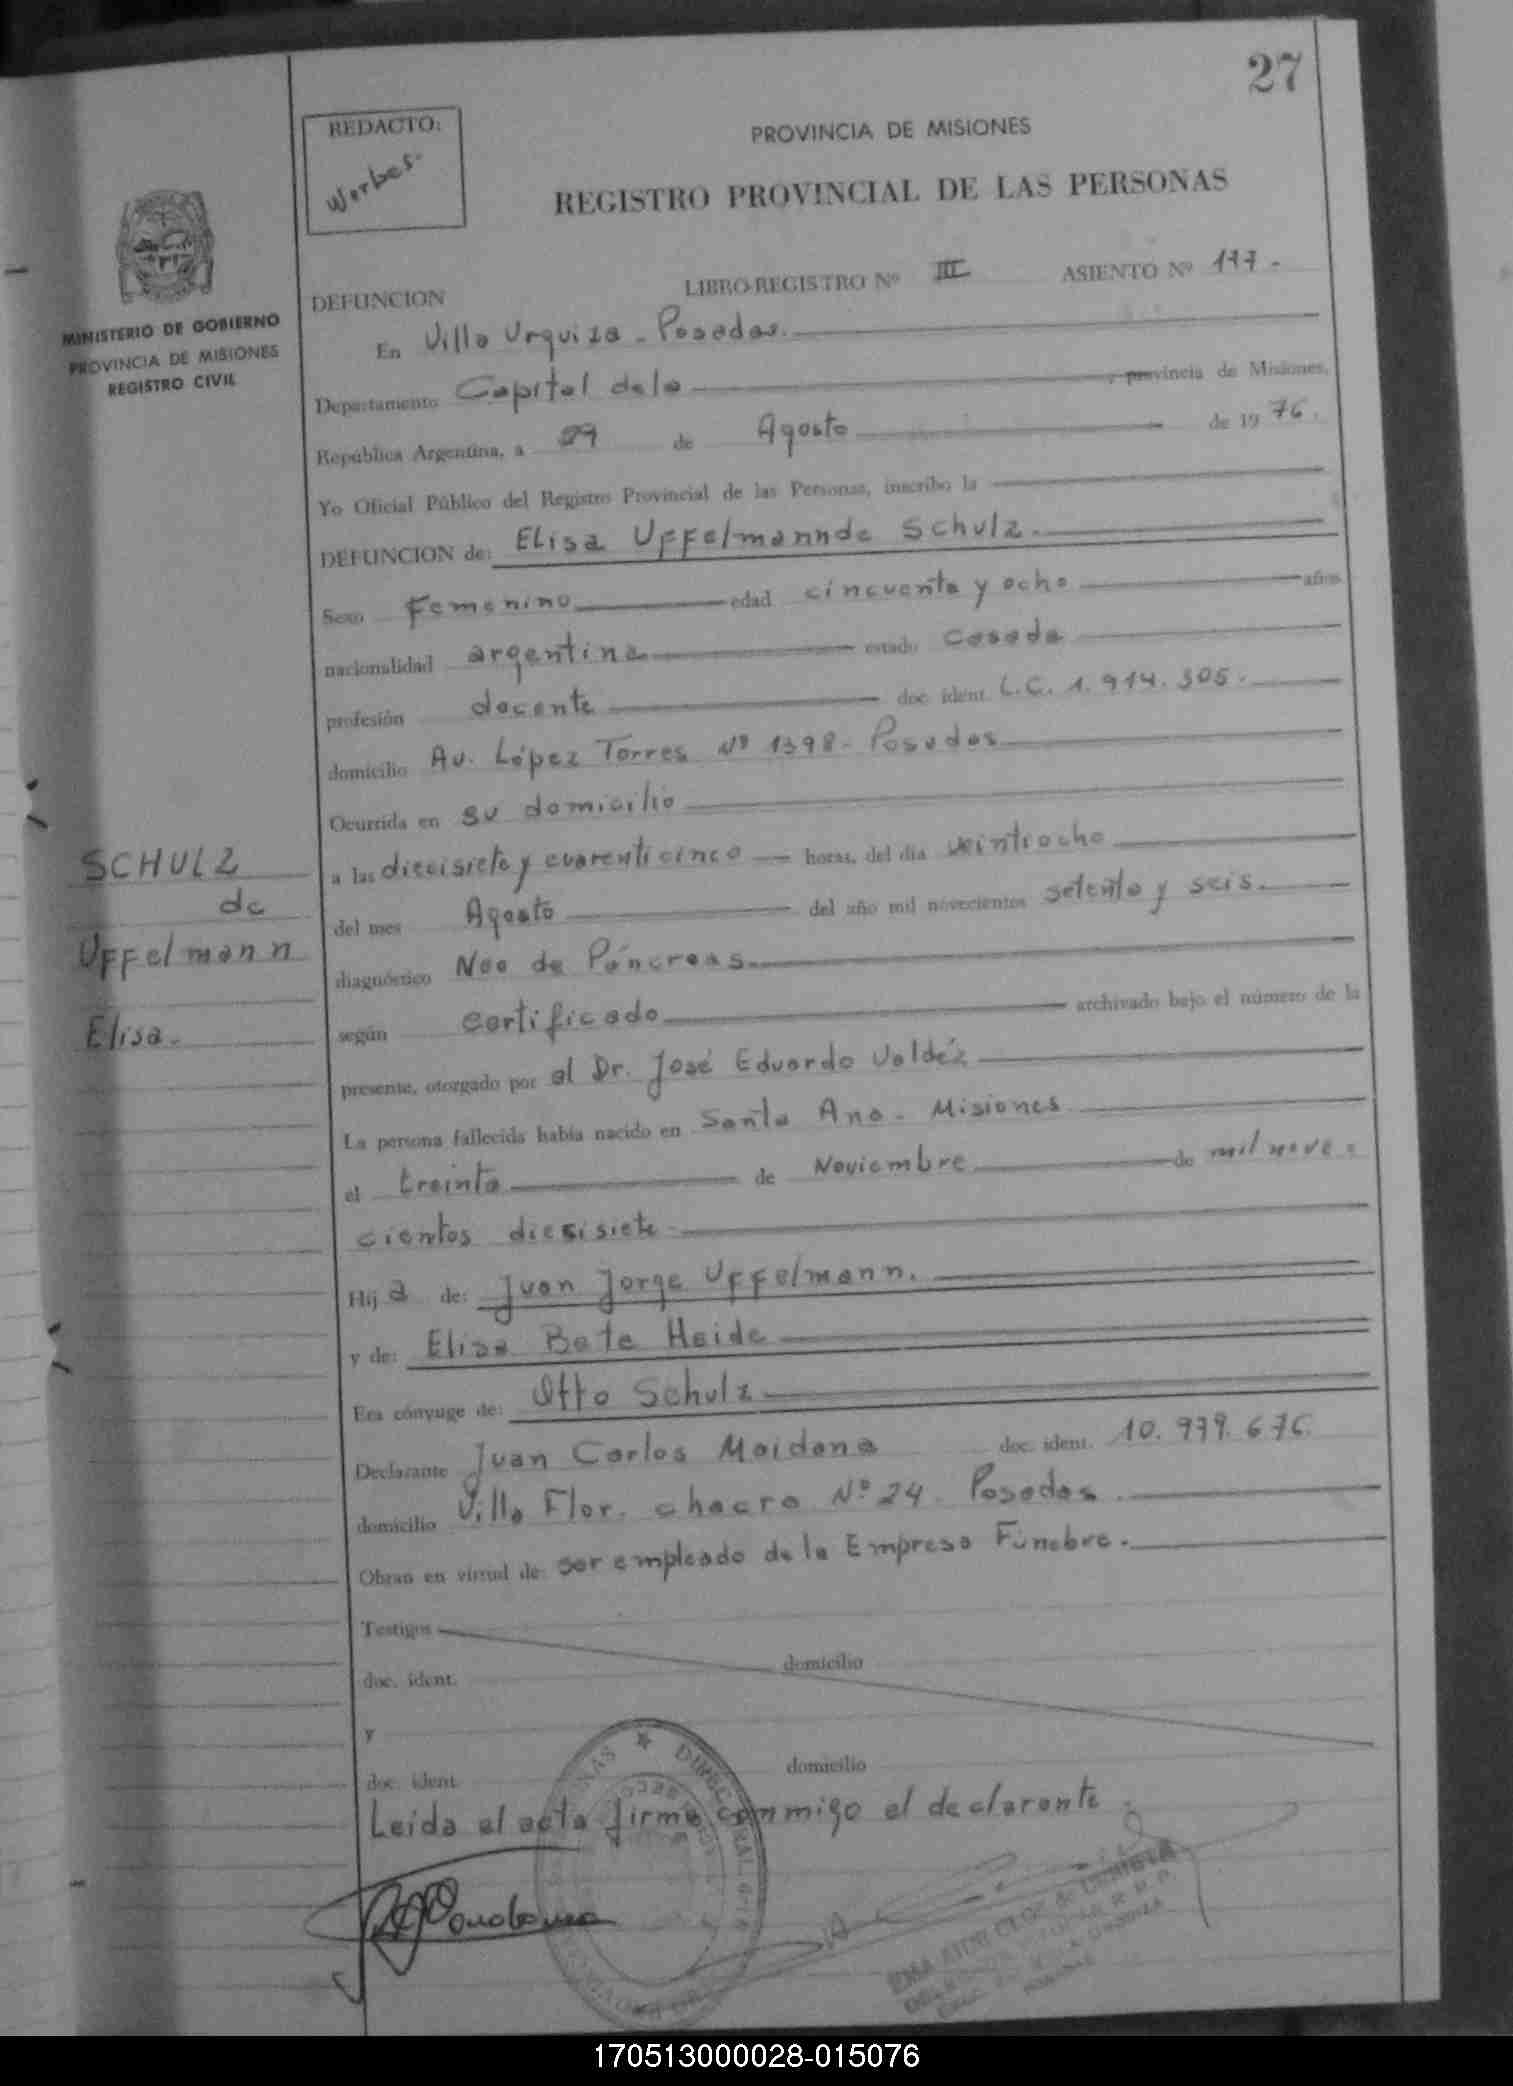 27
REDACTO:
Werbes.
PROVINCIA DE MISIONES
REGISTRO PROVINCIAL DE LAS PERSONAS
MINISTERIO DE GOBIERNO
PROVINCIA DE MISIONES
REGISTRO CIVIL
DEFUNCION LIBRO-REGISTRO Nº III ASIENTO Nº 177.
En Villa Urquiza - Posadas.
Departamento Capital dela , provincia de Misiones,
República Argentina, a 29 de Agosto de 1976.
Yo Oficial Público del Registro Provincial de las Personas, inscribo la
DEFUNCION de: Elisa Uffelmann de Schulz.
Sexo Femenino edad cincuenta y ocho años
nacionalidad argentina estado casada
profesión docente doc. ident. L.C. 1.914.305.
domicilio Av. López Torres Nº 1398 - Posadas
Ocurrida en su domicilio
a las diecisiete y cuarenticinco horas, del día veintiocho
del mes Agosto del año mil novecientos setenta y seis.
diagnóstico Neo de Páncreas.
según certificado archivado bajo el número de la
presente, otorgado por el Dr. José Eduardo Valdéz
La persona fallecida había nacido en Santa Ana - Misiones
el treinta de Noviembre de mil nove=
cientos diesisiete.
Hij a de: Juan Jorge Uffelmann.
y de: Elisa Bete Heide
Era cónyuge de: Otto Schulz
Declarante Juan Carlos Maidana doc. ident. 10.979.676.
domicilio Villa Flor. chacra Nº 24. Posadas.
Obran en virtud de: ser empleado de la Empresa Fúnebre.
Testigos
doc. ident. domicilio
y
doc. ident. domicilio
Leída el acta firma conmigo el declarante.
SCHULZ
de
Uffelmann
Elisa.
170513000028-015076